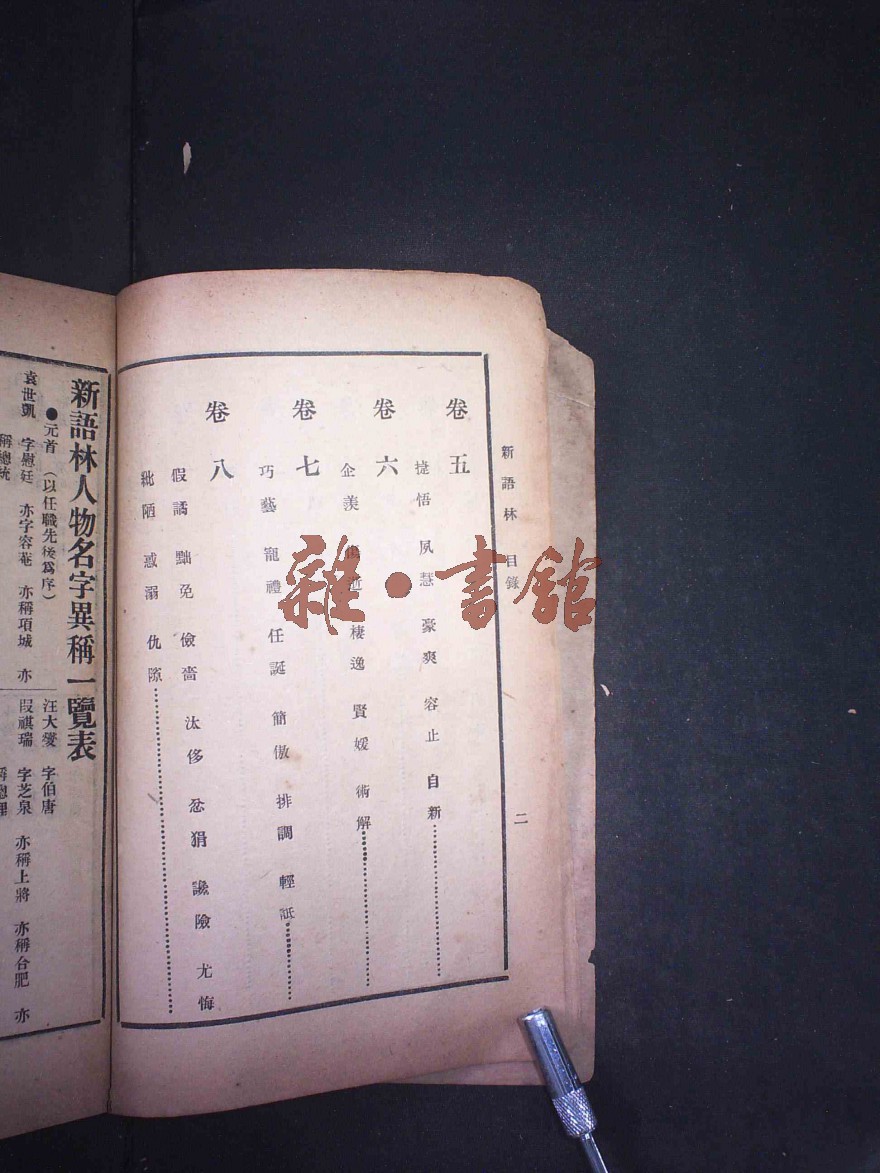 新語林 目錄
二
卷五
捷悟 夙慧 豪爽 容止 自新
卷六
企羡 傷逝 棲逸 賢媛 術解
卷七
巧藝 寵禮 任誕 簡傲 排調 輕詆
卷八
假譎 黜免 儉嗇 汰侈 忿狷 讒險 尤悔
紕陋 惑溺 仇隙
雜·書館
新語林人物名字異稱一覽表
●元首 (以任職先後爲序)
袁世凱 字慰廷 亦字容菴 亦稱項城 亦
稱總統
汪大燮 字伯唐
段祺瑞 字芝泉 亦稱上將 亦稱合肥 亦
稱總理